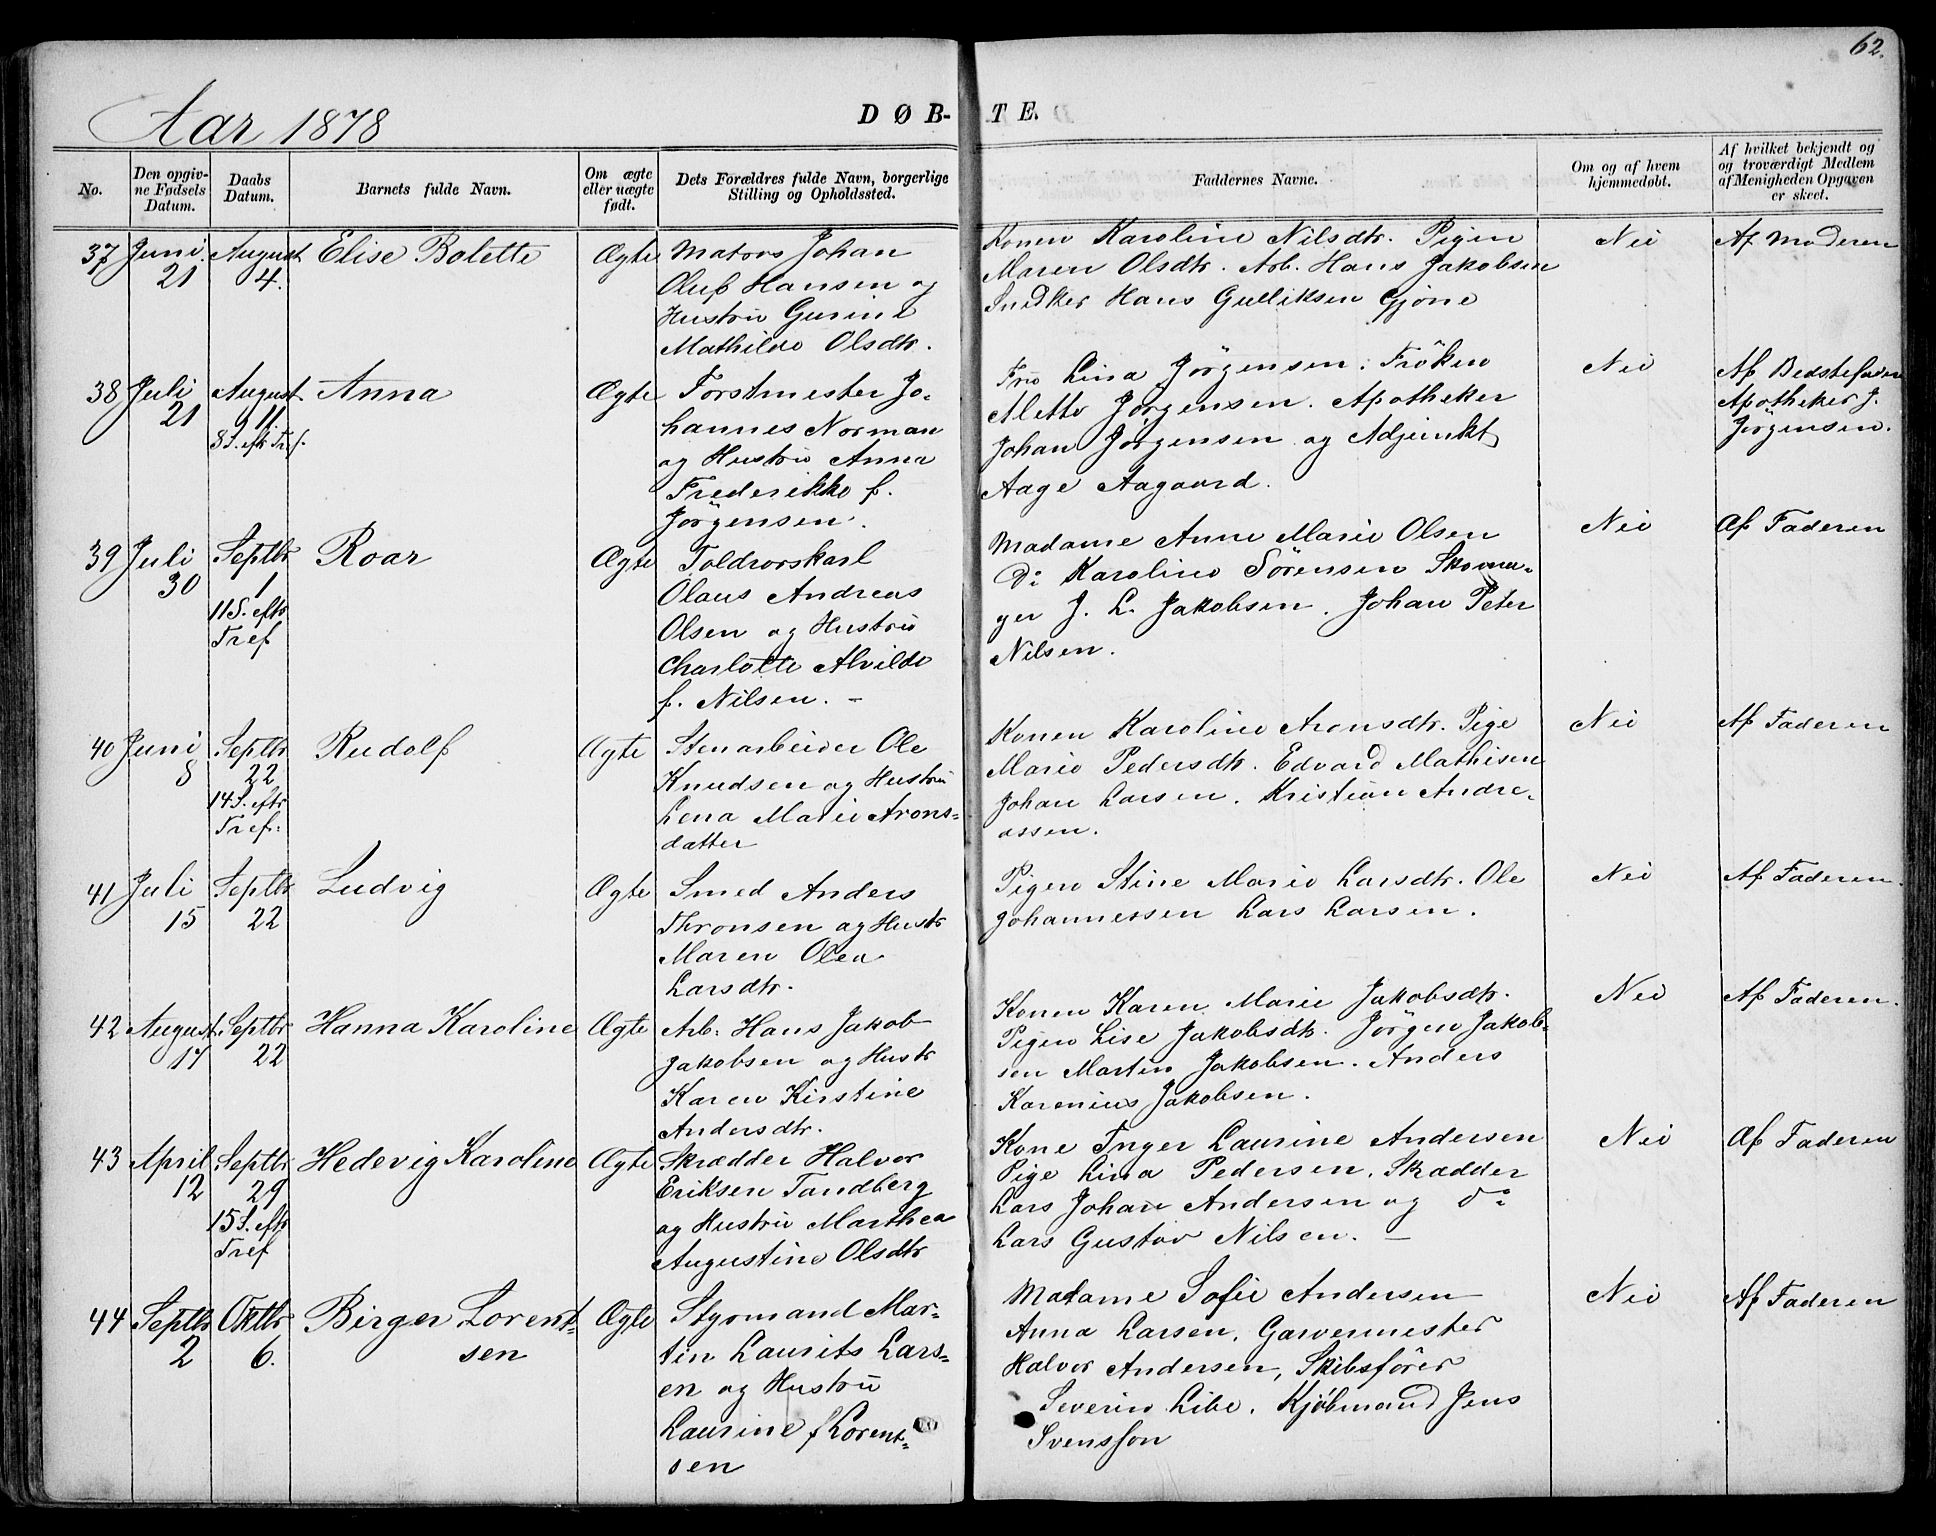 62.
Aar 1878
DØB-TE.
No.
Den opgiv-
ne Fødsels
Datum.
Daabs
Datum.
Barnets fulde Navn.
Om ægte
eller uægte
født.
Dets Forældres fulde Navn, borgerlige
Stilling og Opholdssted.
Faddernes Navne.
Om og af hvem
hjemmedøbt.
Af hvilket bekjendt og
og troværdigt Medlem
af Menigheden Opgaven
er skeet.
37
Juni
21
August
4.
Elise Bolette
Ægte
Matros Johan
Oluf Hansen og
Hustru Gurine
Mathilde Olsdtr.
Konen Karoline Nilsdtr. Pigen
Maren Olsdtr. Arb. Hans Jakobsen
Snedker Hans Gulliksen Gjöne
Nei
Af Moderen
38
Juli
21
August
11
8 S. eftr Tref.
Anna
Ægte
Forstmester Jo-
hannes Norman
og Hustru Anna
Frederikke f.
Jörgensen.
Fru Lina Jörgensen. Fröken
Mette Jörgensen. Apotheker
Johan Jörgensen og Adjunkt
Aage Aagaard.
Nei
Af Bedstefaderen
Apotheker J.
Jörgensen.
39
Juli
30
Septbr
1
11 S. eftr
Tref
Roar
Ægte
Toldrorskarl
Olaus Andreas
Olsen og Hustru
Charlotte Alvilde
f. Nilsen. -
Madame Anne Marie Olsen
Do Karoline Sörensen Skoma-
ger J. L. Jakobsen. Johan Peter
Nilsen.
Nei
Af Faderen
40
Juni
8
Septbr
22
14 S. eftr
Tref.
Rudolf
Ægte
Stenarbeider Ole
Knudsen og Hustru
Lena Marie Arons-
datter
Konen Karoline Aronsdtr. Pige
Marie Pedersdtr. Edvard Mathisen
Johan Larsen. Kristian Andre-
assen.
Nei
Af Faderen
41
Juli
15
Septbr
22
Ludvig
Ægte
Smed Anders
Thronsen og Hustr
Maren Olea
Larsdtr.
Pigen Stine Marie Larsdtr. Ole
Johannessen Lars Larsen.
Nei
Af Faderen.
42
August
17
Septbr
22
Hanna Karoline
Ægte
Arb. Hans Jakob
Jakobsen og Hustr
Karen Kirstine
Andersdtr.
Konen Karen Marie Jakobsdtr.
Pigen Lise Jakobsdtr. Jörgen Jakob-
sen Martin Jakobsen. Anders
Karenius Jakobsen.
Nei
Af Faderen.
43
April
12
Septbr
29
15 S. eftr
Tref
Hedevig Karoline
Ægte
Skrædder Halvor
Eriksen Tandberg
og Hustru Marthea
Augustine Olsdtr
Kone Inger Laurine Andersen
Pige Lina Pedersen. Skrædder
Lars Johan Andersen og do
Lars Gustav Nilsen. -
Nei
Af Faderen
44
Septbr
2
Oktbr
6.
Birger Lorent-
sen
Ægte
Styrmand Mar-
tin Laurits Lars-
en og Hustru
Laurine f Lorent-
sen
Madame Sofie Andersen
Anna Larsen. Garvermester
Halvor Andersen, Skibsförer
Severin Libe. Kjöbmand Jens
Svensson
Nei
Af Faderen